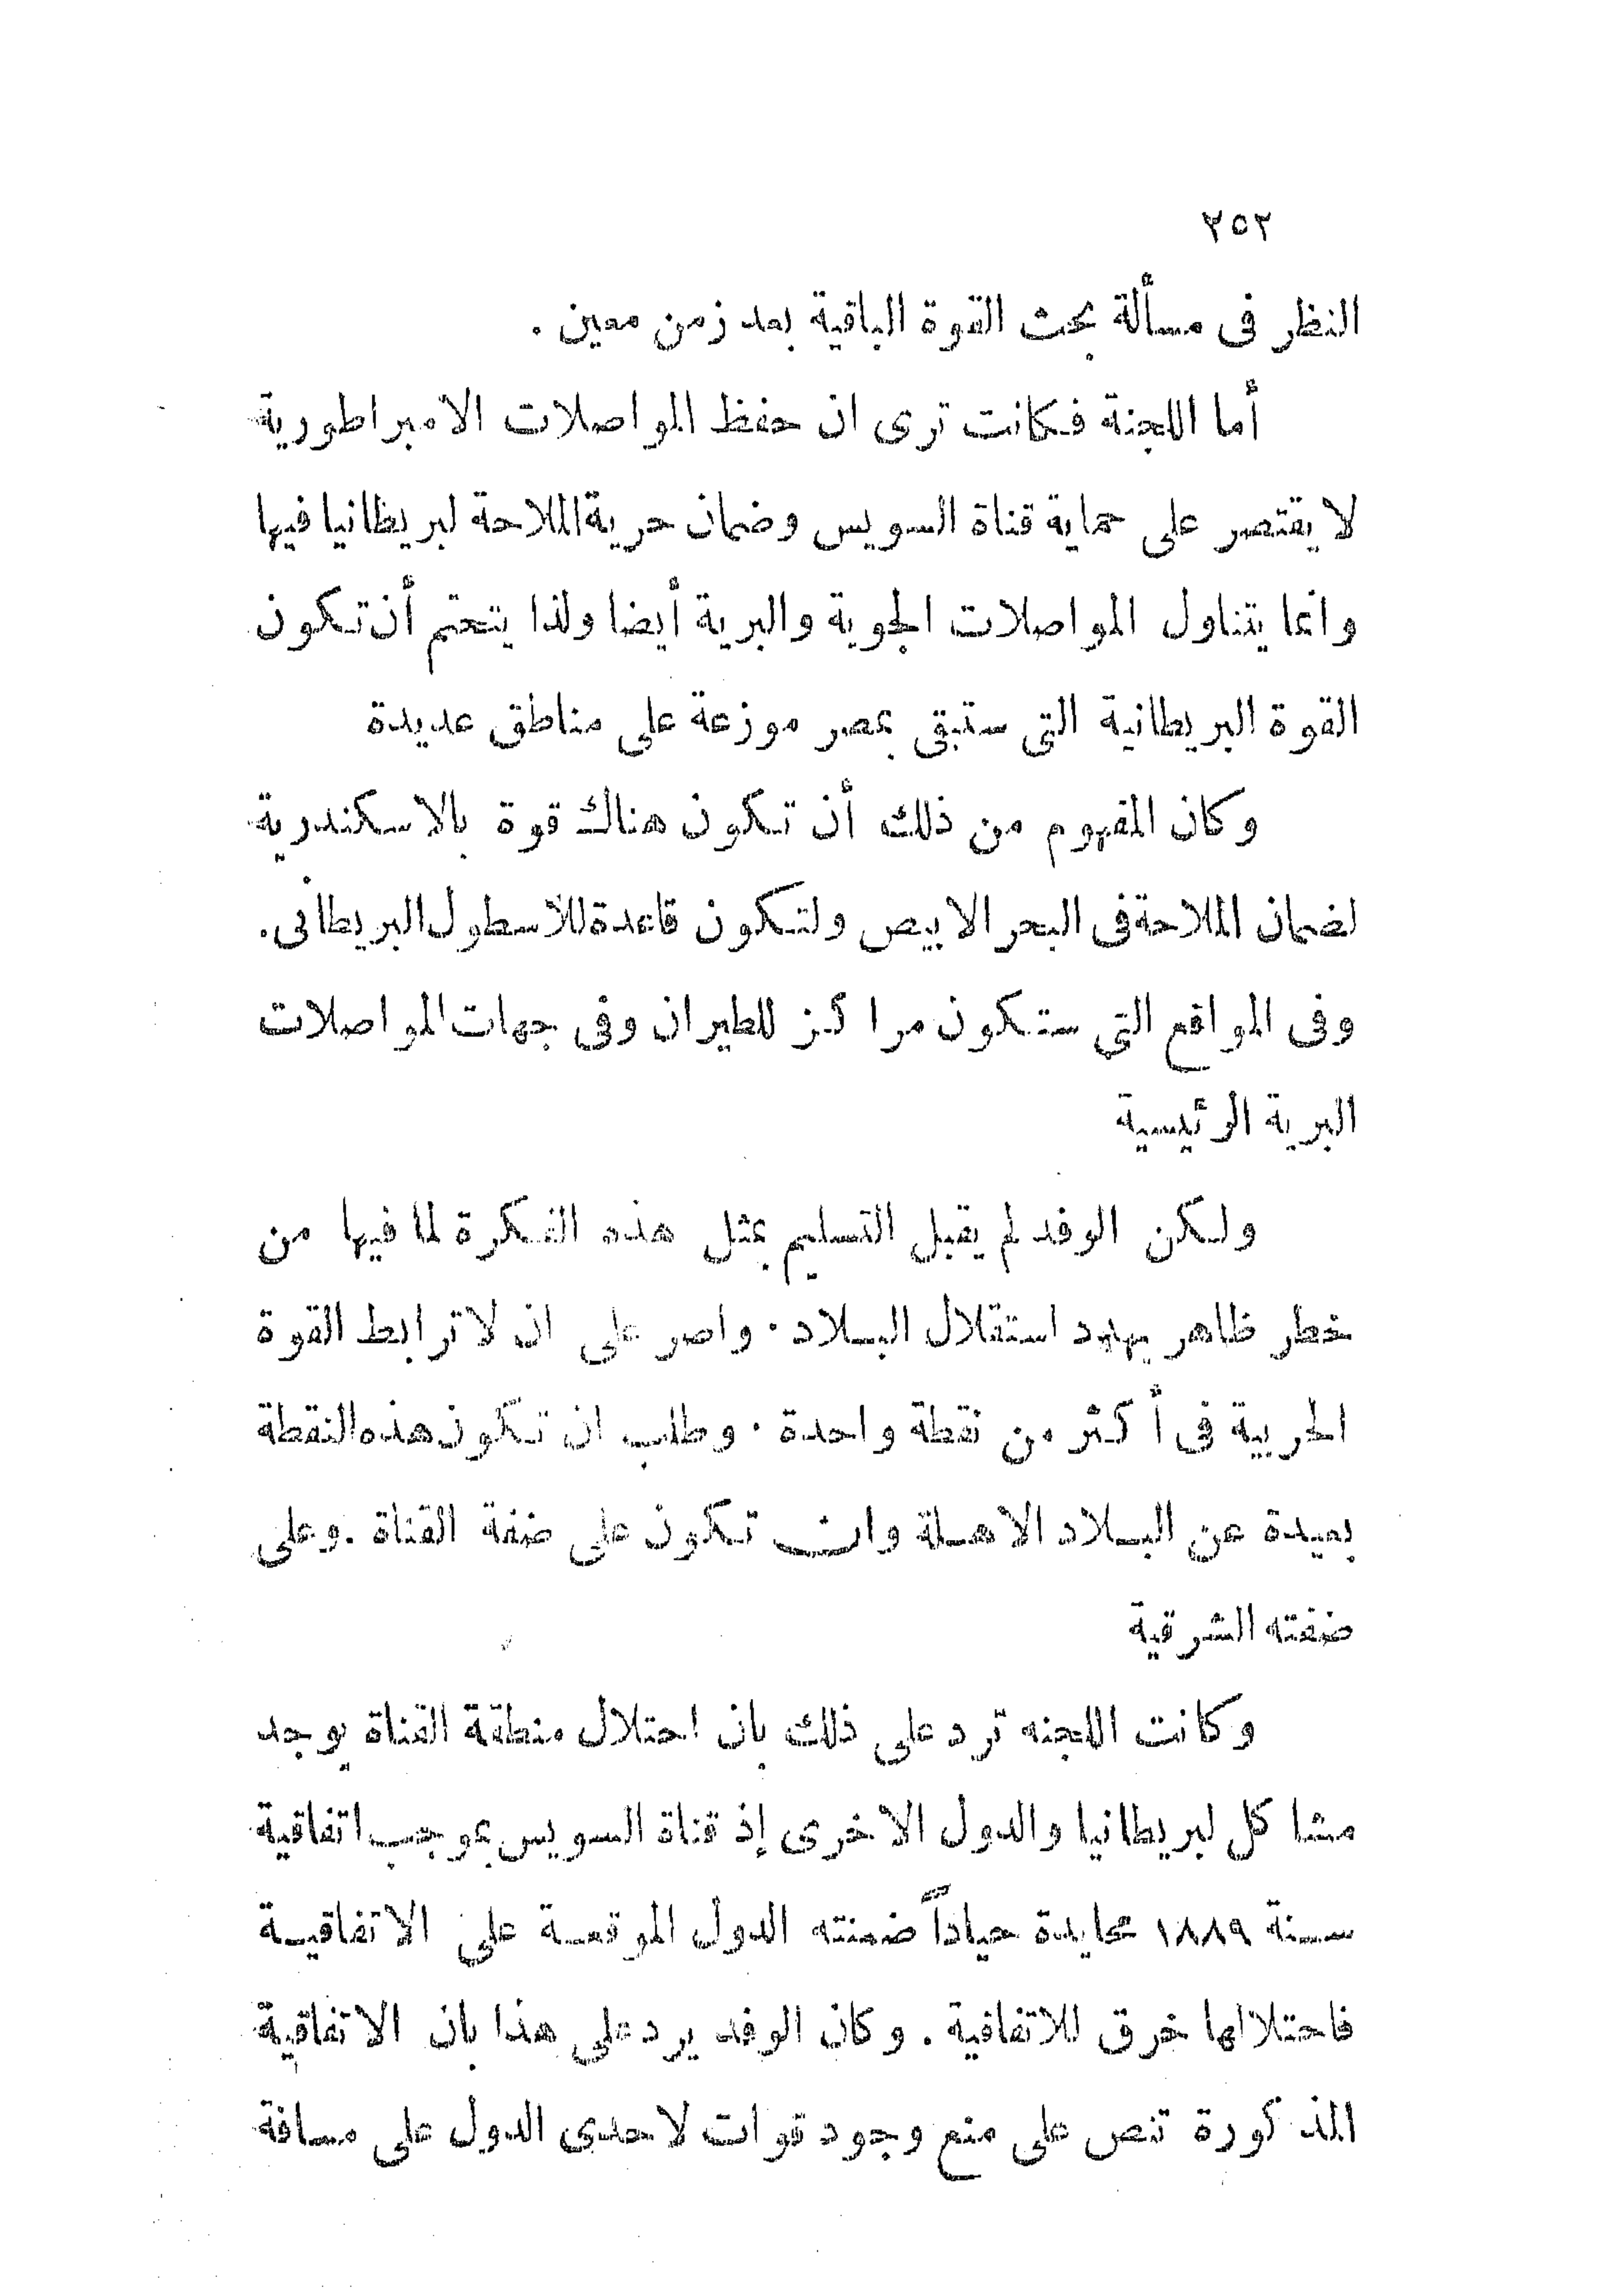 ٢٥٢
النظر فى مسألة بحث القوة الباقية بعد زمن معين .
أما اللجنة فكانت ترى ان حفظ المواصلات الامبراطورية
لا يقتصر على حماية قناة السويس وضمان حرية الملاحة لبريطانيا فيها
وانما يتناول المواصلات الجوية والبرية أيضا ولذا يتحتم أن تكون
القوة البريطانية التى ستبقى بمصر موزعة على مناطق عديدة
وكان المفهوم من ذلك أن تكون هناك قوة بالاسكندرية
لضمان الملاحة فى البحر الابيض ولتكون قاعدة للأسطول البريطانى.
وفى المواقع التى ستكون مراكز للطيران وفى جهات المواصلات
البرية الرئيسية
ولكن الوفد لم يقبل التسليم بمثل هذه الفكرة لما فيها من
خطر ظاهر يهدد استقلال البلاد . واصر على ان لا ترابط القوة
الحربية فى أكثر من نقطة واحدة . وطلب ان تكون هذه النقطة
بعيدة عن البلاد الاهلة وان تكون على ضفة القناة . وعلى
ضفته الشرقية
وكانت اللجنه ترد على ذلك بان احتلال منطقة القناة يوجد
مشاكل لبريطانيا والدول الاخرى إذ قناة السويس بموجب اتفاقية
سنة ١٨٨٩ محايدة حياداً ضمنته الدول الموقعة على الاتفاقية
فاحتلالها خرق للاتفاقية . وكان الوفد يرد على هذا بان الاتفاقية
المذكورة تنص على منع وجود قوات لاحدى الدول على مسافة